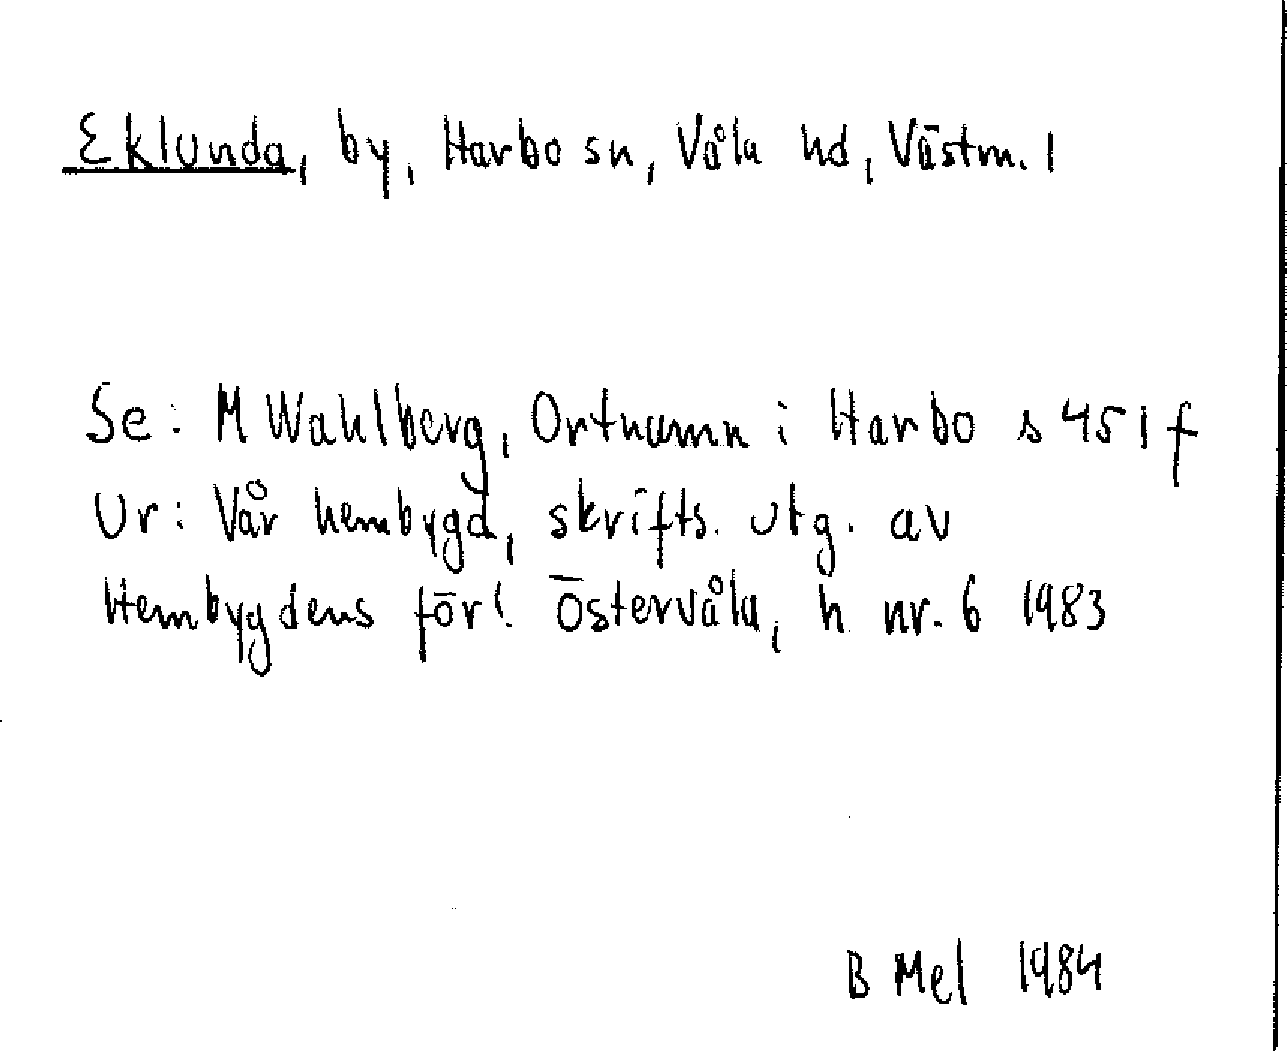 Eklunda, by, Harbo sn, Våla hd, Västm. l
Se: M Wahlberg, Ortnamn i Harbo s 451 f
Ur: Vår hembygd, skrifts. utg. av
Hembygdens för! Östervåla, h nr. 6 1983
B Mel 1984